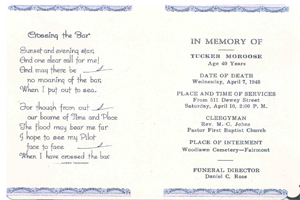 Crossing the Bar
Sunset and evening star,
And one clear call for me!
And may there be
no moaning of the bar,
When I put out to sea.
For though from out
our bourne of Time and Place
The flood may bear me far
I hope to see my Pilot
face to face
When I have crossed the bar.
IN MEMORY OF
TUCKER MOROOSE
Age 40 Years
DATE OF DEATH
Wednesday, April 7, 1948
PLACE AND TIME OF SERVICES
From 511 Dewey Street
Saturday, April 10, 2:00 P. M.
CLERGYMAN
Rev. M. C. Jones
Pastor First Baptist Church
PLACE OF INTERMENT
Woodlawn Cemetery—Fairmont
FUNERAL DIRECTOR
Daniel C. Ross